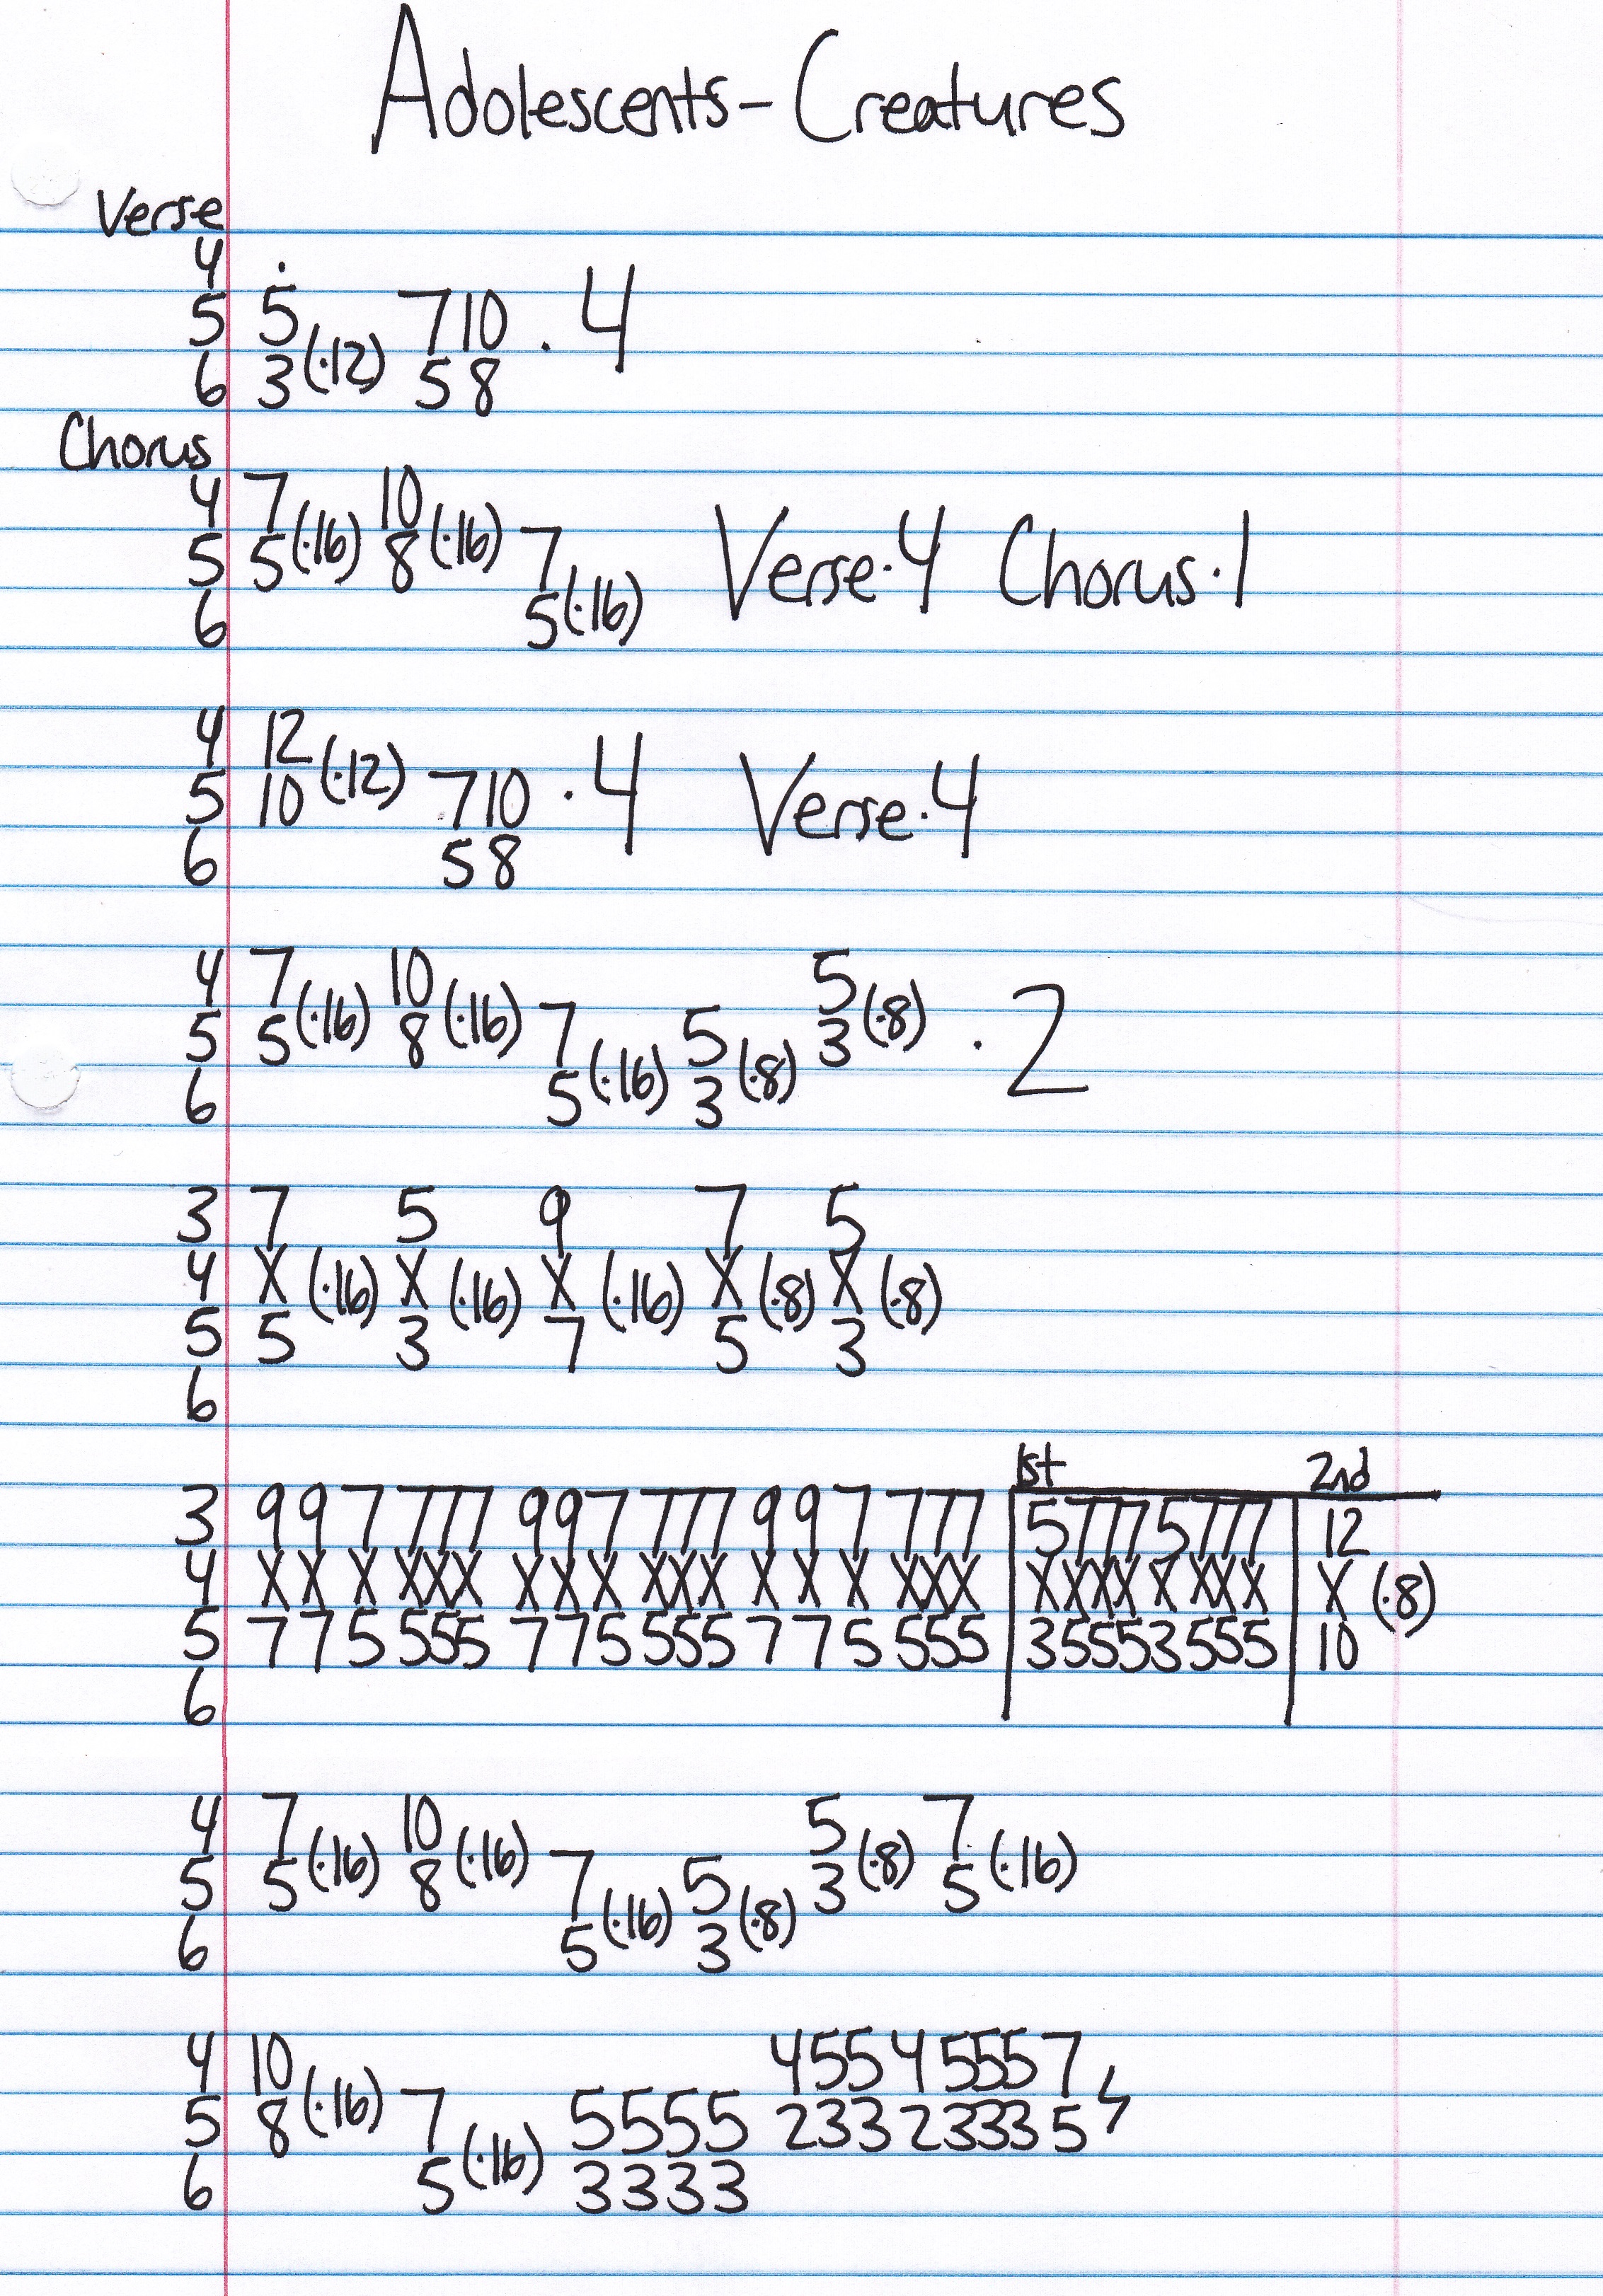 Adolescents - Creatures
Verse
4 .
5 5 7 10 · 4
6 3 (·12) 5 8
Chorus
4 7 (·16) 10 (·16)
5 5 8 7 Verse·4 Chorus·1
6 5 (·16)
4 12 (·12)
5 10 7 10 · 4 Verse·4
6 5 8
4 7 (·16) 10 (·16) 5 (·8)
5 5 8 7 5 3 · 2
6 5 (·16) 3 (·8)
3 7 5 9 7 5
4 X (·16) X (·16) X (·16) X (·8) X (·8)
5 5 3 7 5 3
6
1st 2nd
3 9 9 7 7 7 7 9 9 7 7 7 7 9 9 7 7 7 7 5 7 7 7 5 7 7 7 12
4 X X X X X X X X X X X X X X X X X X X X X X X X X X X (·8)
5 7 7 5 5 5 5 7 7 5 5 5 5 7 7 5 5 5 5 3 5 5 5 3 5 5 5 10
6
4 7 (·16) 10 (·16) 5 (·8) 7 (·16)
5 5 8 7 5 3 5
6 5 (·16) 3 (·8)
4 10 (·16) 4 5 5 4 5 5 5 7
5 8 7 5 5 5 5 2 3 3 2 3 3 3 5
6 5 (·16) 3 3 3 3